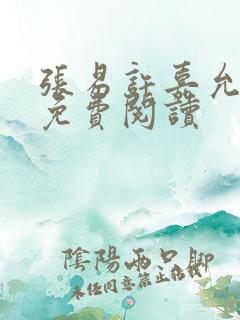 張易許嘉允
免費閱讀
陰陽兩只腳
未經同意禁止轉載